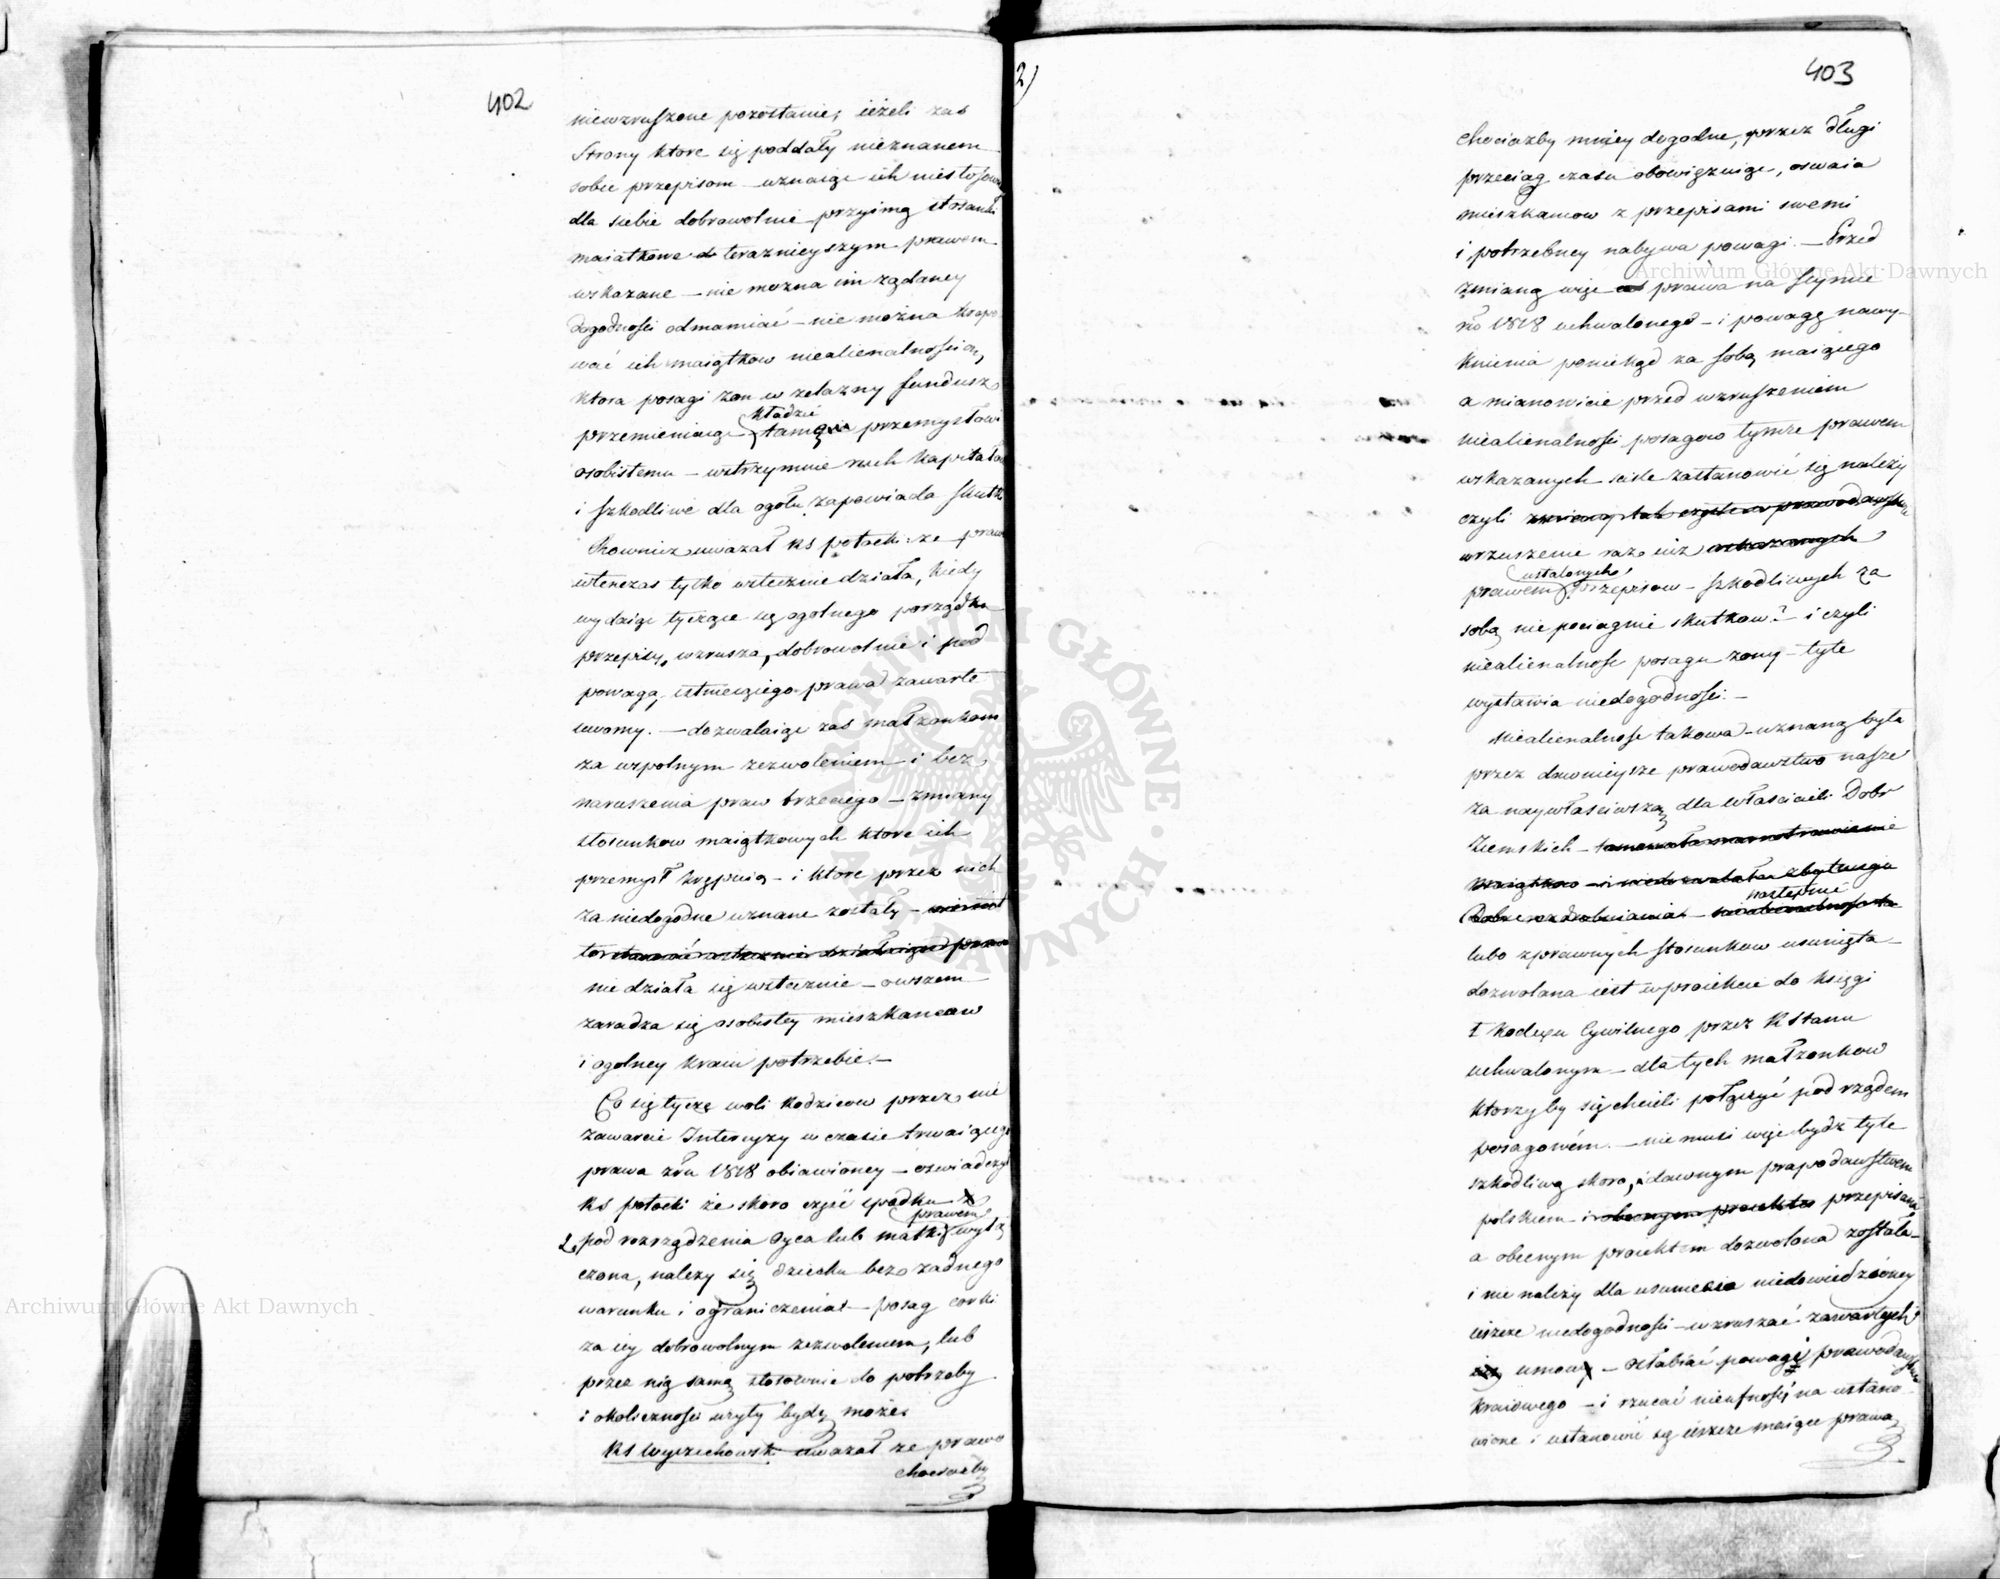 402
niewzruszone pozostanie; ieżeli zas
Strony ktore się poddały nieznanem
sobie przepisom – uznaige ich niestosown
dla siebie dobrowolnie przyimą stosunki
maiatkowe terazniejszym prawem
wskazane – nie mozna im żądaney
dogodności odmawiać – nie można krępo
wać ich maiątkow niealienalnością,
ktora posagi żon w żelazny fundusz
przemieniaige kładzie tamę przemysłowi
osobistemu – wstrzymuie ruch kapitałow
i szkodliwe dla ogołu zapowiada skutk
Rownież uważał RS potocki że praw
wtenczas tylko wstecznie działa, kiedy
wydaige tyczące się ogolnego porządku
przepisy, wzrusza, dobrowolnie i pod
powagą istnieiącego prawa zawarte
umowy. – dozwalaige zas małżonkom
za wspolnym zezwoleniem i bez
naruszenia praw trzeciego – zmiany
stosunkow maiątkowych ktore ich
przemysł krępuią – i ktore przez nich
za niedogodne uznane zostały –
nie działa się wstecznie – owszem
zaradza się osobistey mieszkancow
i ogolney kraiu potrzebie. –
Co się tyczę woli Rodzicow przez nie
zawarcie Intercyzy w czasie trwaiącego
prawa zRu 1818 obiawioney – oswiadczył
RS potocki że skoro część spadku
z pod rozrządzenia Oyca lub matki prawem wyłą
czona, należy się dziecku bez żadnego
warunku i ograniczenia – posag corki
za iey dobrowolnym zezwoleniem, lub
przez nią samą stosownie do potrzeby
i okoliczności użyty bydź może.
RS Wyczechowski uważał że prawo
chociażby
2)
403
chociażby mniey dogodne, przez długi
przeciąg czasu obowięzuige, oswaia
mieszkancow z przepisami swemi
i potrzebney nabywa powagi. – Przed
zmianą więc prawa na seymie
ro 1818 uchwalonego – i powagę nawy-
knienia poniekąd za sobą maiącego
a mianowicie przed wzruszeniem
niealienalności posagow tymże prawem
wskazanych scisle zastanowić się należy
czyli
wzruszenie raz iuż
prawem ustalonych przepisow – szkodliwych za
sobą nie pociągnie skutkow? – i czyli
niealienalność posagu żony – tyle
wystawia niedogodności. –
Niealienalność takowa – uznaną była
przez dawnieysze prawodawztwo nasze
za naywłaściwszą dla właścicieli Dobr
Ziemskich –
następnie
lubo zprawnych stosunkow usunięta –
dozwolana iest wproiekcie do księgi
I Kodexu Cywilnego przez R Stanu
uchwalonym – dla tych małżonkow
ktorzyby się chcieli połączyć pod rządem
posagowém. – nie musi więc bydź tyle
szkodliwą skoro, i dawnym prawodawstwem
polskiem – przepisaną
a obecnym proiektem dozwolona została –
i nie należy dla usuniecia niedowiedzioney
ieszcze niedogodności – wzruszać zawartych
umow – osłabiać powagę prawodawstwa
kraiowego – i rzucać nieufność na ustano-
wione i ustanowić się ieszcze maiące prawa
Archiwum Główne Akt Dawnych
Archiwum Główne Akt Dawnych
ARCHIWUM GŁÓWNE AKT DAWNYCH